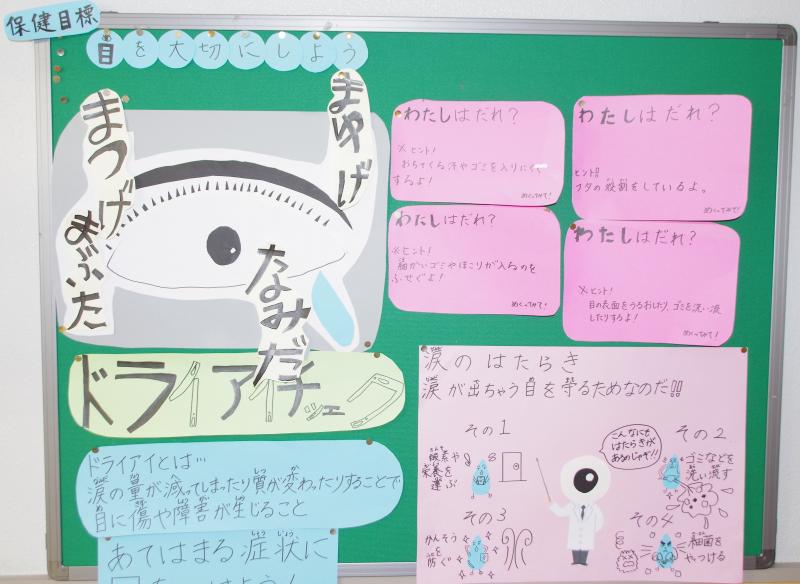 保健目標
目を大切にしよう
まゆげ
まつげ
まぶた
なみだ
わたしはだれ?
※ヒント!
おちてくる汗やゴミを入りにくく
するよ!
めくってみて!
わたしはだれ?
ヒント!!
フタの役割をしているよ。
めくってみて!
わたしはだれ?
※ヒント!
細かいゴミやほこりが入るのを
ふせぐよ!
めくってみて!
わたしはだれ?
※ヒント!
目の表面をうるおしたり、ゴミを洗い流
したりするよ!
めくってみて!
ドライアイチェック
ドライアイとは…
涙の量が減ってしまったり質が変わったりすることで
目に傷や障害が生じること
あてはまる症状に
涙のはたらき
涙が出ちゃう目を守るためなのだ!!
その1
酸素や
栄養を
運ぶ
こんなにも
はたらきが
あるのじゃぞ!!
その2
ゴミなどを
洗い流す
その3
かんそう
を
防ぐ
その4
細菌を
やっつける